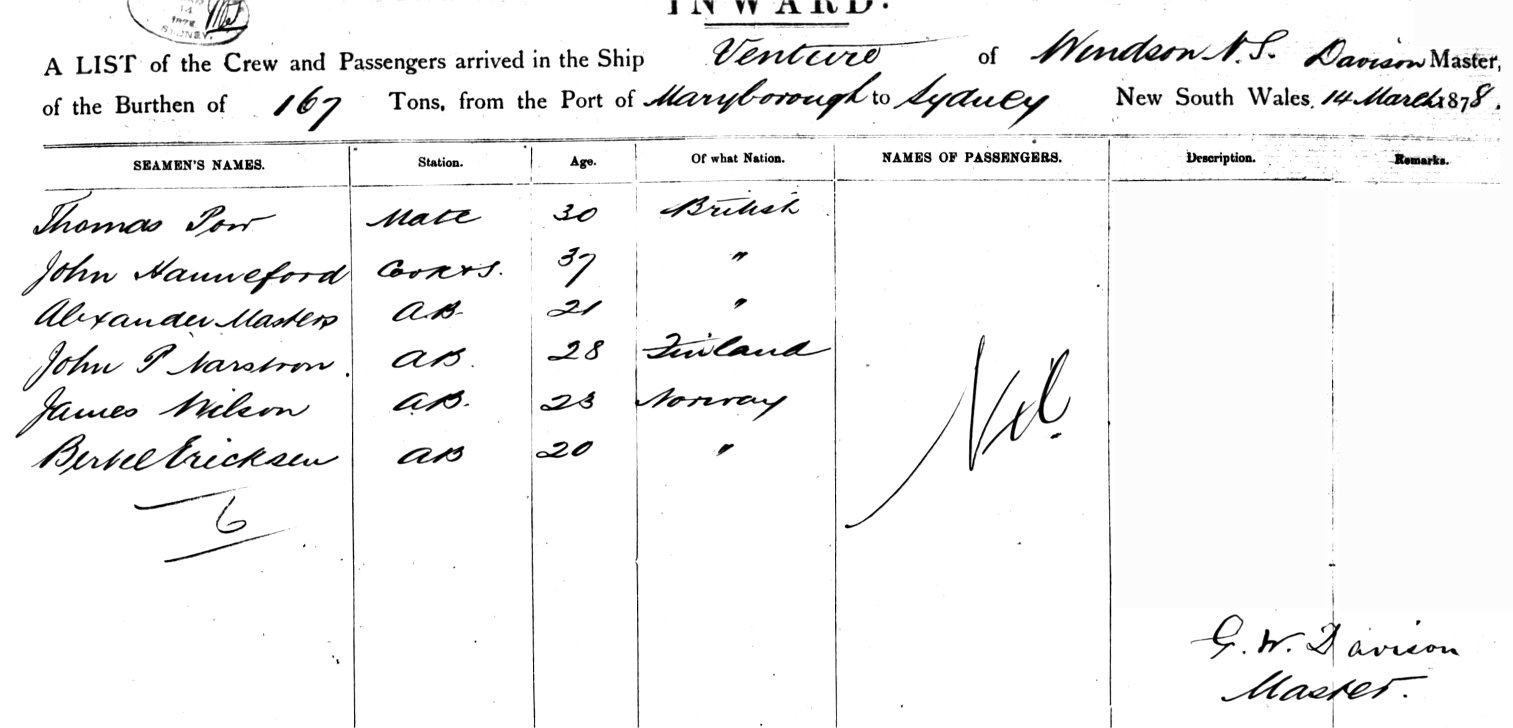 INWARD.
14
1878
SYDNEY
A LIST of the Crew and Passengers arrived in the Ship Venture of Windsor N.S. Davison Master,
of the Burthen of 167 Tons, from the Port of Maryborough to Sydney New South Wales, 14 March 1878.
SEAMEN'S NAMES. Station. Age. Of what Nation. NAMES OF PASSENGERS. Description. Remarks.
Thomas Pow Mate 30 British
John Hanneford Cook & S. 37 "
Alexander Masters AB 21 "
John P Narstrom AB. 28 Finland
James Wilson AB. 23 Norway
Bertel Ericksen AB 20 "
Nil.
6
G. W. Davison
Master.